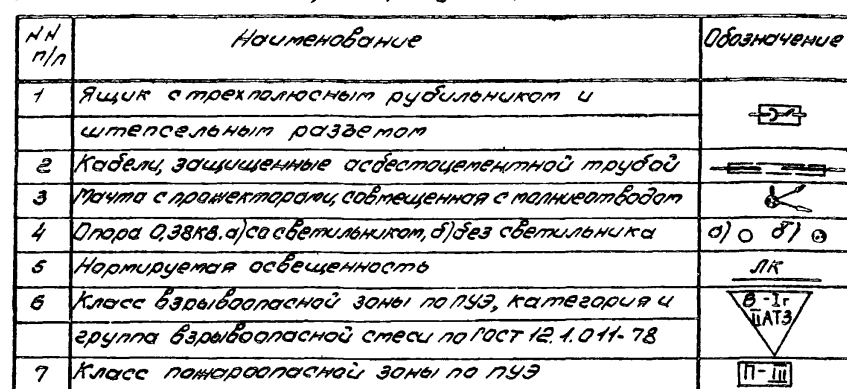 NN п/п Наименование Обозначение
1 Ящик с трехполюсным рубильником и
штепсельным разъемом
2 Кабели, защищенные асбестоцементной трубой
3 Мачта с прожекторами, совмещенная с молниеотводом
4 Опора 0,38кв. а) со светильником, б) без светильника а) б)
5 Нормируемая освещенность ЛК
6 Класс взрывоопасной зоны по ПУЭ, категория и В-Iг
группа взрывоопасной смеси по ГОСТ 12.1.011-78 IIАТ3
7 Класс пожароопасной зоны по ПУЭ П-III